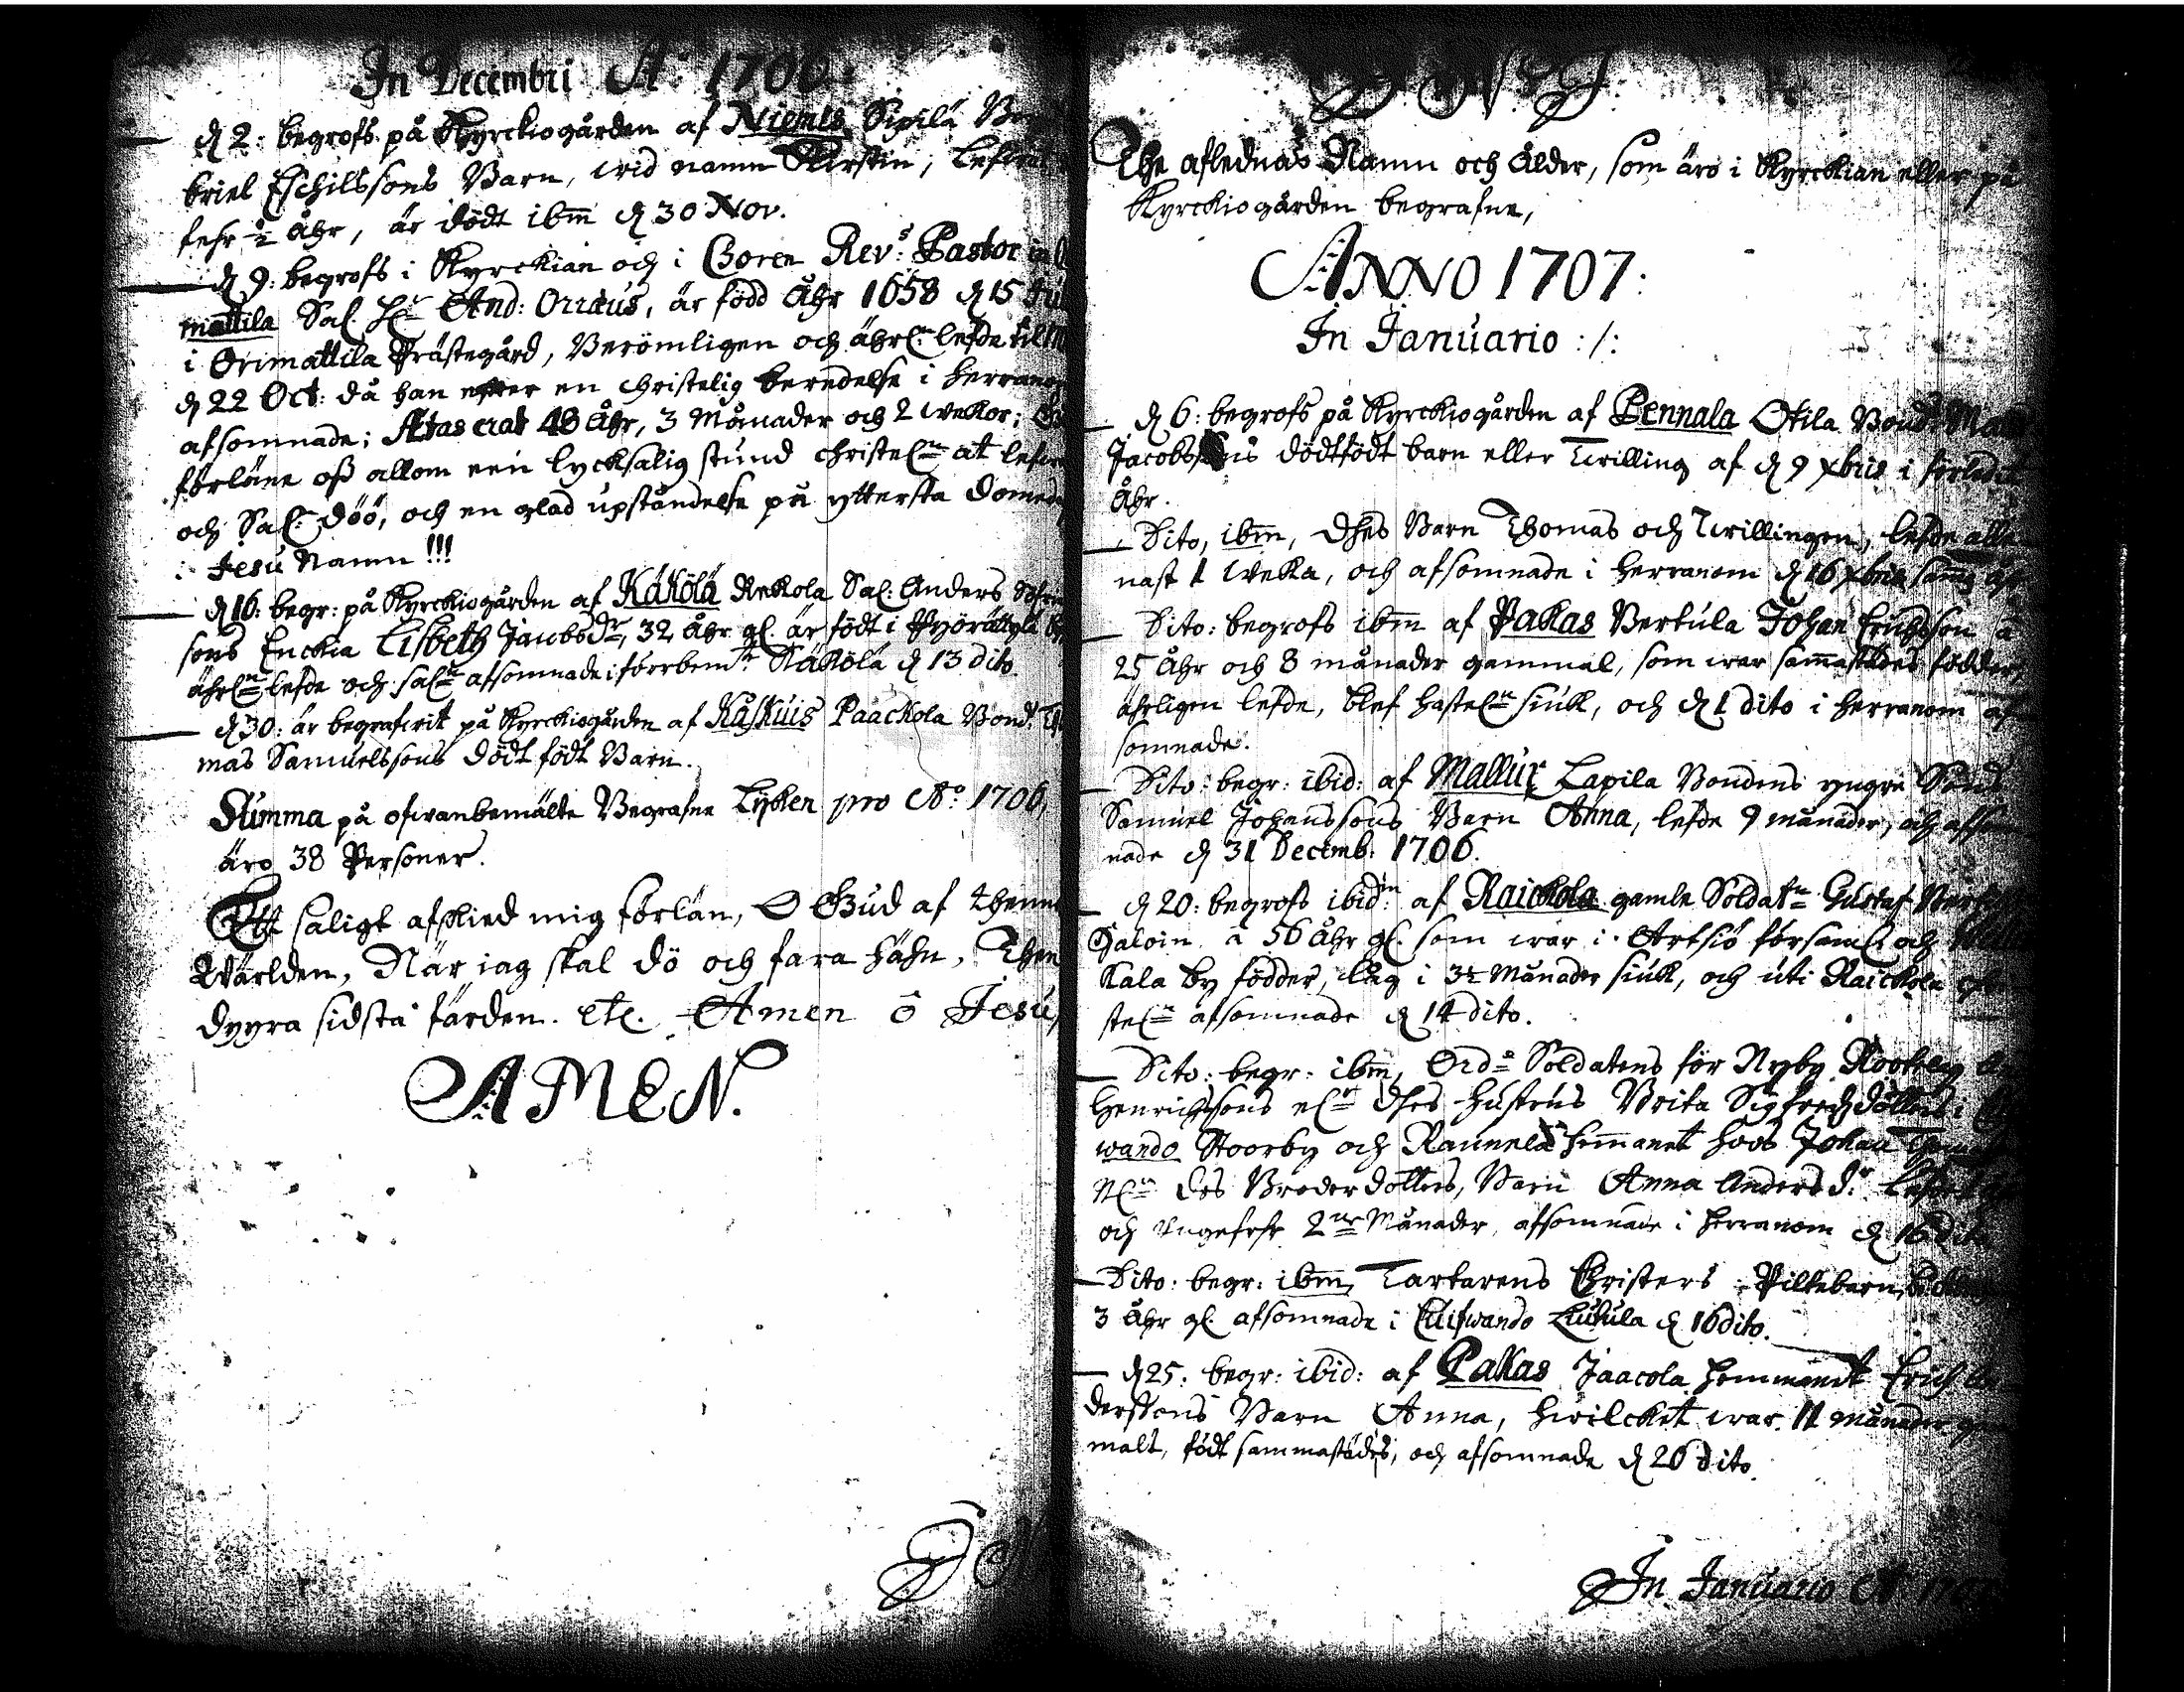 In Decembri A:o 1706:
d 2: begrofs på Kyrckiogården af Niemis Sipilä
briel Eschilssons Barn, wid namn Kirstin,
fehr ½ Åhr, är dödt ibm̃ d 30 Nov.
d 9: begrofs i Kyrckian och i Choren Rev:s Pastor
mattila Sal. H:r And: Orræus, är född Åhr 1658 d 15
i Orimattila Prästegård, Berömligen och ährl:n lefde
d 22 Oct: då han efter en christelig beredelse i
afsomnade; Ætas erat 48 Åhr, 3 Månader och 2 wekor;
förläne oß allom een lycksalig stund christel:n at
och Sal: döö, och en glad upståndelse på yttersta
Jesu Namn !!!
d 16: begr: på Kyrckiogården af Käkölä Rekola Sal: Anders
sons Enckia Lisbeth Jacobsd:r, 32 Åhr gl. är födt i
ährl:n lefde och sal:n afsomnade i förrbem:te Käkölä d 13 dito
d 30: är begrafwit på Kyrckiogården af Kåskuis Paackola Bond:
mas Samuelssons dödt födt Barn.
Summa på ofwanbemälte Begrafne Lijken pro A:o 1706,
äro 38 Personer.
Ett saligt afskied mig förlän, O Gud af
Wärlden, När jag skal dö och fara hähn, Then
dyyra sidsta färden. etc. Amen ô Jesu,
AMEN.
The aflednas Namn och Ålder, som äro i Kyrckian eller på
Kyrckiogården begrafne,
ANNO 1707:
In Januario :/:
d 6: begrofs på Kyrckiogården af Pennala Otila Bond:
Jacobssons dödtfödt barn eller Twilling af d 9 xbris i
Åhr.
Dito, ibm̃, dhes Barn Thomas och Twillingen, lefde
nast 1 weka, och afsomnade i herranom d 16 xbris
Dito: begrofs ibm̃ af Pakas Pertula Johan Erichsson a
25 Åhr och 8 månader gammal, som war sam̃astädes födder,
ährligen lefde, blef hastel:n siuk, och d 1 dito i herranom af
somnade.
Dito: begr: ibid: af Mallus Lapila Bondens yngre Sons
Samuel Johanssons Barn Anna, lefde 9 månader, och afsom
nade d 31 Decemb: 1706.
d 20: begrofs ibid:m af Raickola gamle Soldat:n Gustaf
Haloin a 56 Åhr gl. som war i Artsiö församl: och
kala by födder, låg i 3½ Månader siuk, och uti Raickola
stel:n afsomnade d 14 dito.
Dito: begr: ibm̃, Ord:e Soldatens för Nyby
Henrichssons dhes hustrus Brita Sigfredzdotters i
wando Stoorby och Raunela hem̃anet hoos Johan
des Broder dotters, Barn Anna Andersd:r
och ungefehr 2:ne Månader, afsomnade i herranom d 16 dito
Dito: begr: ibm̃, Tartarens Christers Piltebarn,
3 Åhr gl. afsomnade i Luhula d 16 dito.
d 25. begr: ibid: af Pakas Jaacola hemmanet Erich
derssons Barn Anna, hwilcket war 11 månader
malt, födt sammastädes, och afsomnade d 20 dito.
In Januario A:o